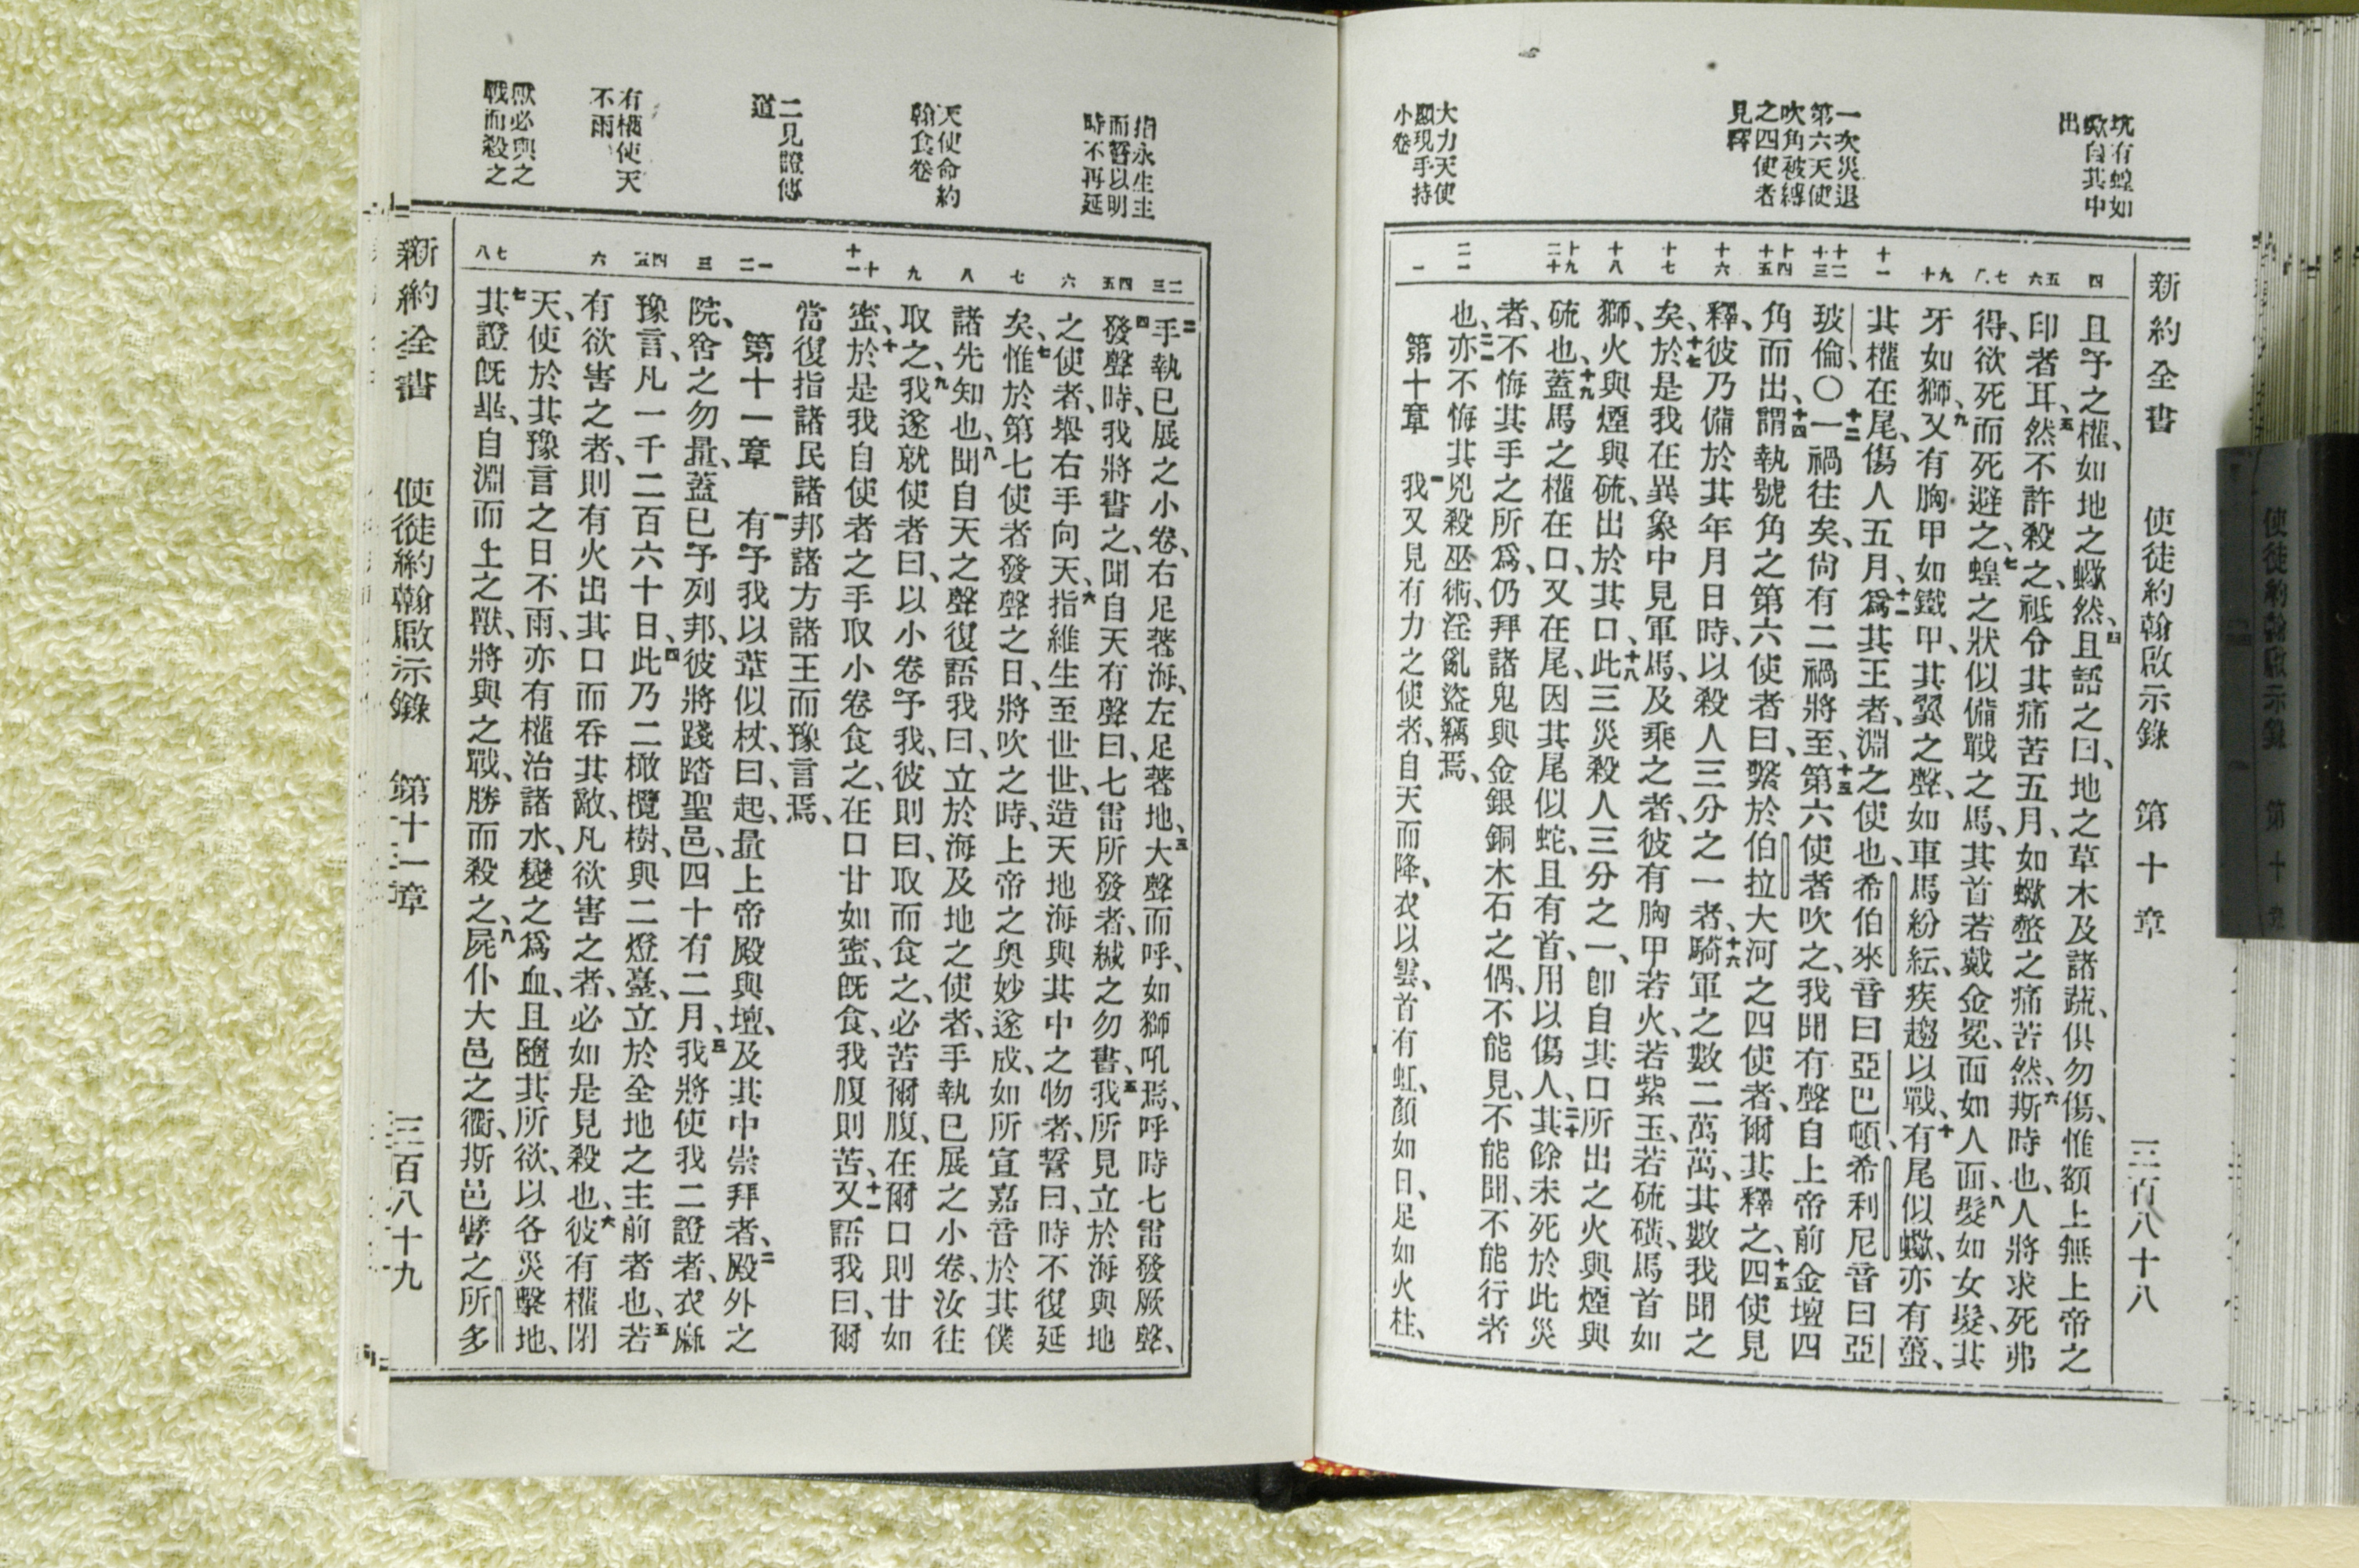 坑有蝗如
蠍自其中
出
一次災退
第六天使
吹角被縛
之四使者
見釋
大力天使
顯現手持
小卷
新約全書 使徒約翰啟示錄 第十章 三百八十八
四
且予之權、如地之蠍然、四且語之曰、地之草木及諸蔬、俱勿傷、惟額上無上帝之
五 六
印者耳、五然不許殺之、祗令其痛苦五月、如蠍螫之痛苦然、六斯時也、人將求死弗
七 八
得、欲死而死避之、七蝗之狀似備戰之馬、其首若戴金冕、面如人面、八髮如女髮、其
九 十
牙如獅、九又有胸甲如鐵甲、其翼之聲、如車馬紛紜、疾趨以戰、十有尾似蠍、亦有蠆、
十一
其權在尾、傷人五月、十一爲其王者、淵之使也、希伯來音曰亞巴頓、希利尼音曰亞
十二 十三
玻倫、〇十二一禍往矣、尙有二禍將至、十三第六使者吹之、我聞有聲自上帝前金壇四
十四 十五
角而出、十四謂執號角之第六使者曰、繫於伯拉大河之四使者、爾其釋之、十五四使見
十六
釋、彼乃備於其年月日時、以殺人三分之一者、十六騎軍之數二萬萬、其數我聞之
十七
矣、十七於是我在異象中見軍馬、及乘之者、彼有胸甲若火、若紫玉、若硫磺、馬首如
十八
獅、火與煙與硫、出於其口、十八此三災殺人三分之一、卽自其口所出之火與煙與
十九 二十
硫也、十九蓋馬之權在口、又在尾、因其尾似蛇、且有首、用以傷人、二十其餘未死於此災
者、不悔其手之所爲、仍拜諸鬼與金銀銅木石之偶、不能見、不能聞、不能行者
二一
也、二一亦不悔其兇殺巫術、淫亂盜竊焉、
一
第十章 一我又見有力之使者、自天而降、衣以雲、首有虹、顏如日、足如火柱、
指永生主
而誓以明
時不再延
天使命約
翰食卷
二見證傳
道
有權使天
不雨
獸必與之
戰而殺之
二 三
二手執已展之小卷、右足著海、左足著地、三大聲而呼、如獅吼焉、呼時七雷發厥聲、
四 五
四發聲時、我將書之、聞自天有聲曰、七雷所發者、緘之勿書、五我所見立於海與地
六
之使者、舉右手向天、六指維生至世世、造天地海與其中之物者、誓曰、時不復延
七
矣、七惟於第七使者發聲之日、將吹之時、上帝之奧妙遂成、如所宣嘉音於其僕
八
諸先知也、八聞自天之聲復語我曰、立於海及地之使者、手執已展之小卷、汝往
九
取之、九我遂就使者曰、以小卷予我、彼則曰、取而食之、必苦爾腹、在爾口則甘如
十 十一
蜜、十於是我自使者之手取小卷食之、在口甘如蜜、旣食、我腹則苦、十一又語我曰、爾
當復指諸民諸邦諸方諸王而豫言焉、
一 二
第十一章 一有予我以葦似杖、曰、起、量上帝殿與壇、及其中崇拜者、二殿外之
三
院、舍之勿量、蓋已予列邦、彼將踐踏聖邑、四十有二月、三我將使我二證者、衣麻
四 五
豫言、凡一千二百六十日、四此乃二橄欖樹、與二燈臺、立於全地之主前者也、五若
六
有欲害之者、則有火出其口而吞其敵、凡欲害之者、必如是見殺也、六彼有權閉
天、使於其豫言之日不雨、亦有權治諸水、變之爲血、且隨其所欲、以各災擊地、
七 八
七其證旣畢、自淵而上之獸、將與之戰、勝而殺之、八屍仆大邑之衢、斯邑譬之所多
新約全書 使徒約翰啟示錄 第十一章 三百八十九